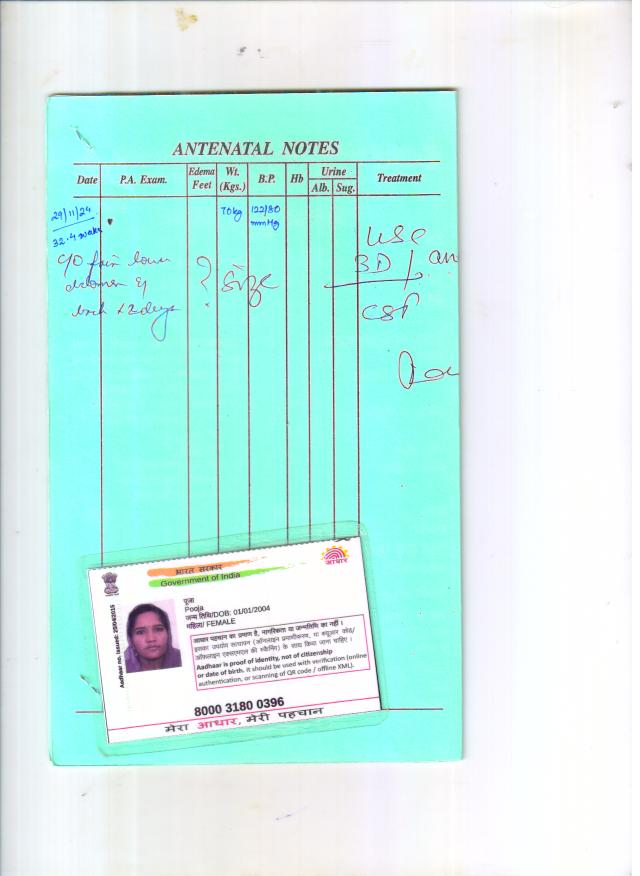 ANTENATAL NOTES
Date P.A. Exam. Edema Feet Wt. (Kgs.) B.P. Hb Urine Alb. Sug. Treatment
29/11/24 70kg 122/80
32.4 weeks mmHg
C/O pain lower
? Size
USG
back x 2 days
भारत सरकार
Government of India
आधार
Aadhaar no. issued: 25/04/2015
पूजा
Pooja
जन्म तिथि/DOB: 01/01/2004
महिला/ FEMALE
आधार पहचान का प्रमाण है, नागरिकता या जन्मतिथि का नहीं।
इसका उपयोग सत्यापन (ऑनलाइन प्रमाणीकरण, या क्यूआर कोड/
ऑफ़लाइन एक्सएमएल की स्कैनिंग) के साथ किया जाना चाहिए।
Aadhaar is proof of identity, not of citizenship
or date of birth. It should be used with verification (online
authentication, or scanning of QR code / offline XML).
8000 3180 0396
मेरा आधार, मेरी पहचान